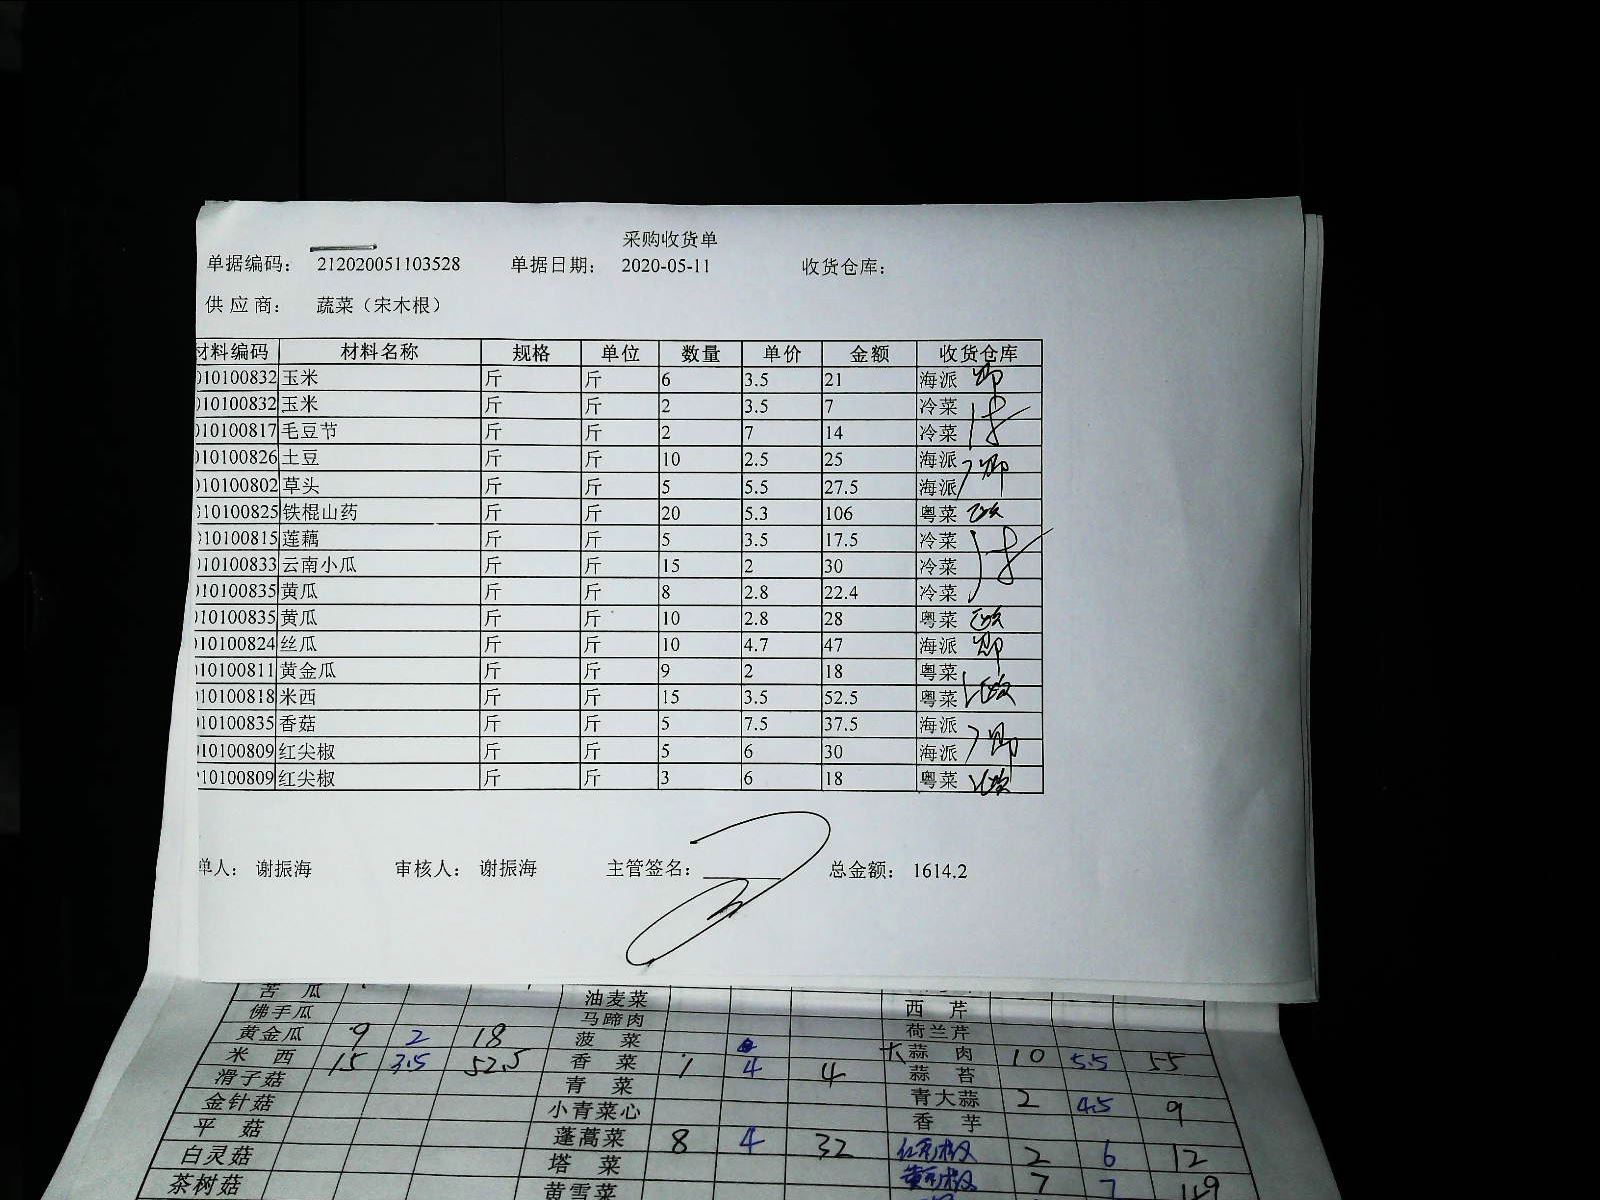 采购收货单
单据编码： 212020051103528 单据日期： 2020-05-11 收货仓库：
供应商： 蔬菜（宋木根）
材料编码 材料名称 规格 单位 数量 单价 金额 收货仓库
010100832 玉米 斤 斤 6 3.5 21 海派
010100832 玉米 斤 斤 2 3.5 7 冷菜
010100817 毛豆节 斤 斤 2 7 14 冷菜
010100826 土豆 斤 斤 10 2.5 25 海派
010100802 草头 斤 斤 5 5.5 27.5 海派
010100825 铁棍山药 斤 斤 20 5.3 106 粤菜
010100815 莲藕 斤 斤 5 3.5 17.5 冷菜
010100833 云南小瓜 斤 斤 15 2 30 冷菜
010100835 黄瓜 斤 斤 8 2.8 22.4 冷菜
010100835 黄瓜 斤 斤 10 2.8 28 粤菜
010100824 丝瓜 斤 斤 10 4.7 47 海派
010100811 黄金瓜 斤 斤 9 2 18 粤菜
010100818 米西 斤 斤 15 3.5 52.5 粤菜
010100835 香菇 斤 斤 5 7.5 37.5 海派
010100809 红尖椒 斤 斤 5 6 30 海派
010100809 红尖椒 斤 斤 3 6 18 粤菜
单人： 谢振海 审核人： 谢振海 主管签名： 总金额： 1614.2
苦瓜 油麦菜 西芹
佛手瓜 马蹄肉 荷兰芹
黄金瓜 9 2 18 菠菜 大蒜肉 10 5.5 55
米西 15 3.5 52.5 香菜 1 4 4 蒜苔
滑子菇 青菜 青大蒜 2 4.5 9
金针菇 小青菜心 香芋
平菇 蓬蒿菜 8 4 32 2 6 12
白灵菇 塔菜 7 7 49
茶树菇 黄雪菜